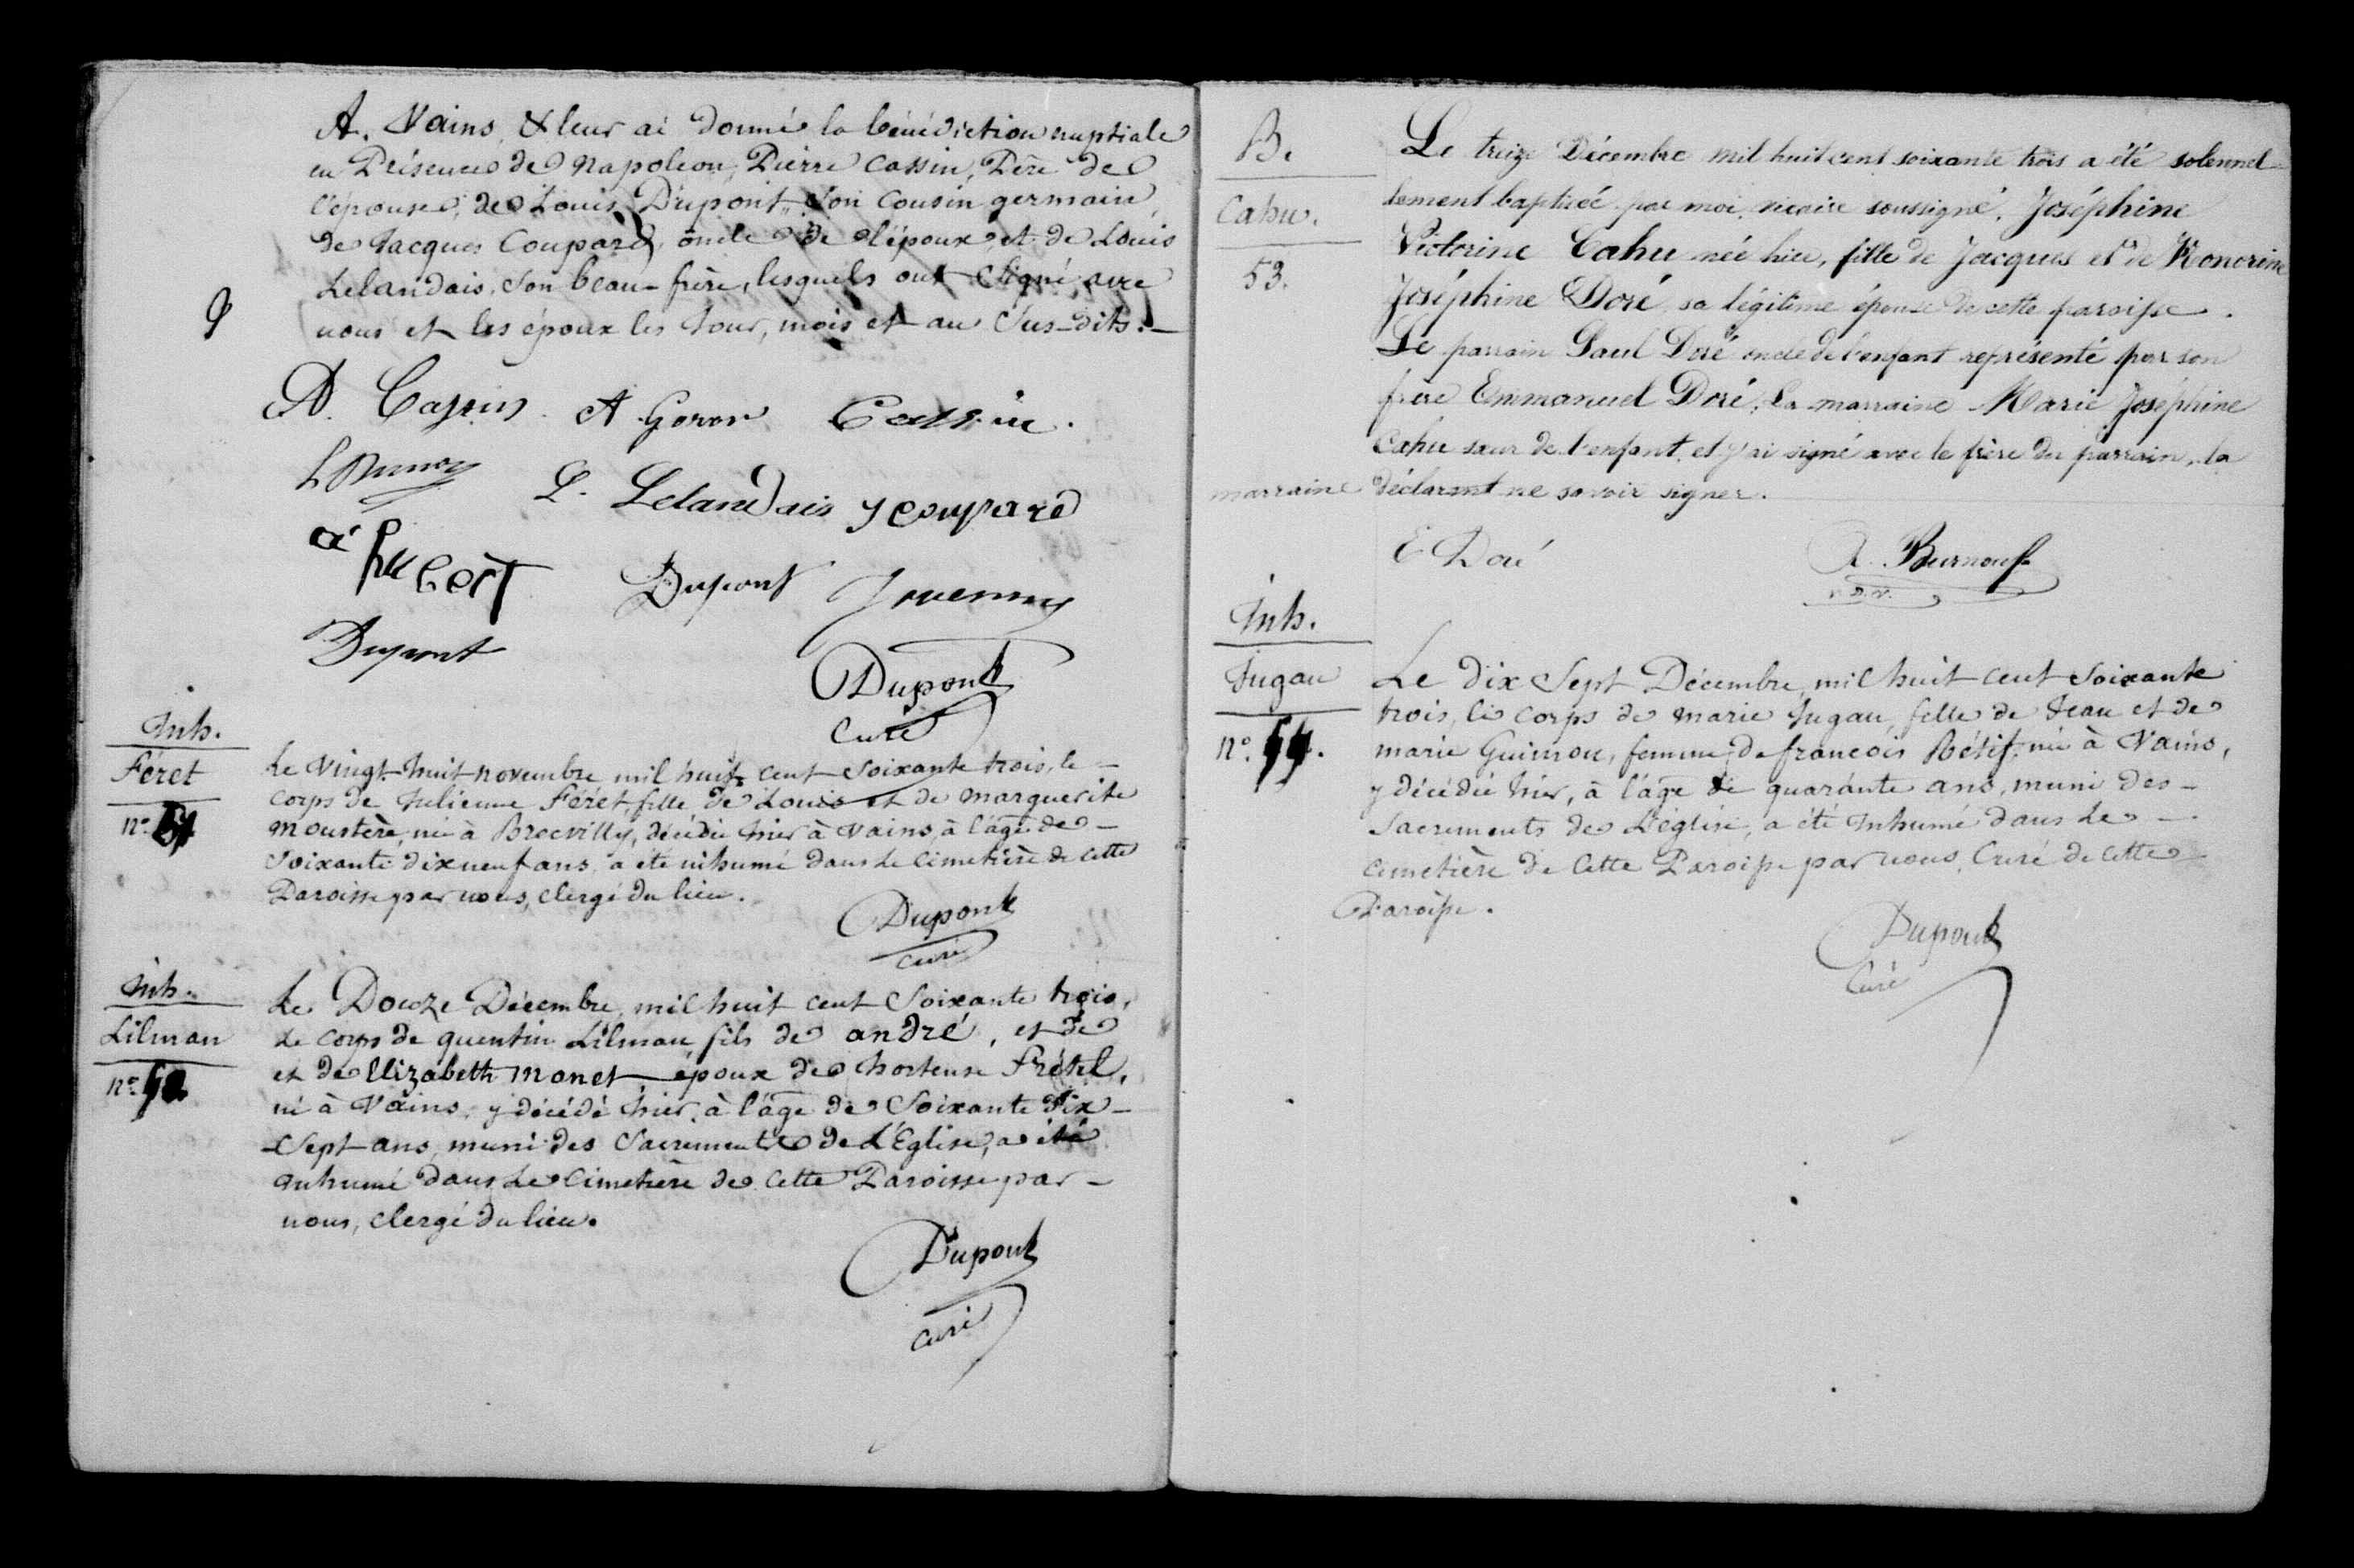 A. Vains, & leur ai donné la bénédiction nuptiale
en Présence de Napoleon, Pierre Cassin, Père de
l'épouse, de Louis Dupont, son Cousin germain,
de Jacques Coupard, oncle de l'époux, et de Louis
Lelandais, son beau-frère, lesquels ont signé avec
nous et les époux les Jour, mois et an sus-dits.
A. Cassin A Goron Cassin.
L. Lelandais J Coupard
Dupont
Dupont
Dupont
Curé
Inh.
Féret
n°. 51
Le vingt-huit novembre mil huit cent soixante trois, le
corps de Julienne Féret, fille de Louis et de marguerite
moustère, né à Brecville, décédée hier à Vains, à l'âge de
soixante dix neuf ans, a été inhumé dans le cimetière de cette
Paroisse par nous, clergé du lieu.
Dupont
curé
Inh.
Lilman
n°. 52
Le Douze Décembre, mil huit cent soixante trois,
le corps de quentin Lilman, fils de andré, et de
et de Elizabeth Monet, époux de hortense Frétel,
né à Vains, y décédé hier, à l'âge de soixante dix-
sept ans, muni des Sacrements de L'Eglise, a été
inhumé dans le cimetière de cette Paroisse par
nous, clergé du lieu.
Dupont
curé
B.
Cahu.
53.
Le treize Décembre mil huit cent soixante trois a été solennel-
lement baptisée par moi, vicaire soussigné, Joséphine
Victorine Cahu née hier, fille de Jacques et de Honorine
Joséphine Doré, sa légitime épouse de cette paroisse.
Le parrain Paul Doré oncle de l'enfant représenté par son
frère Emmanuel Doré, la marraine Marie Joséphine
Cahu sœur de l'enfant, et j'ai signé avec le frère du parrain, la
marraine déclarant ne savoir signer.
E. Doré A. Burnouf
v. d. v.
Inh.
Jugan
n°. 54.
Le dix Sept Décembre, mil huit cent soixante
trois, le corps de marie Jugan, fille de Jean et de
marie Guimon, femme de françois Rétif, né à Vains,
y décédée hier, à l'âge de quarante ans, muni des
Sacrements de L'église, a été inhumé dans le
cimetière de cette Paroisse par nous, Curé de cette
Paroisse.
Dupont
Curé